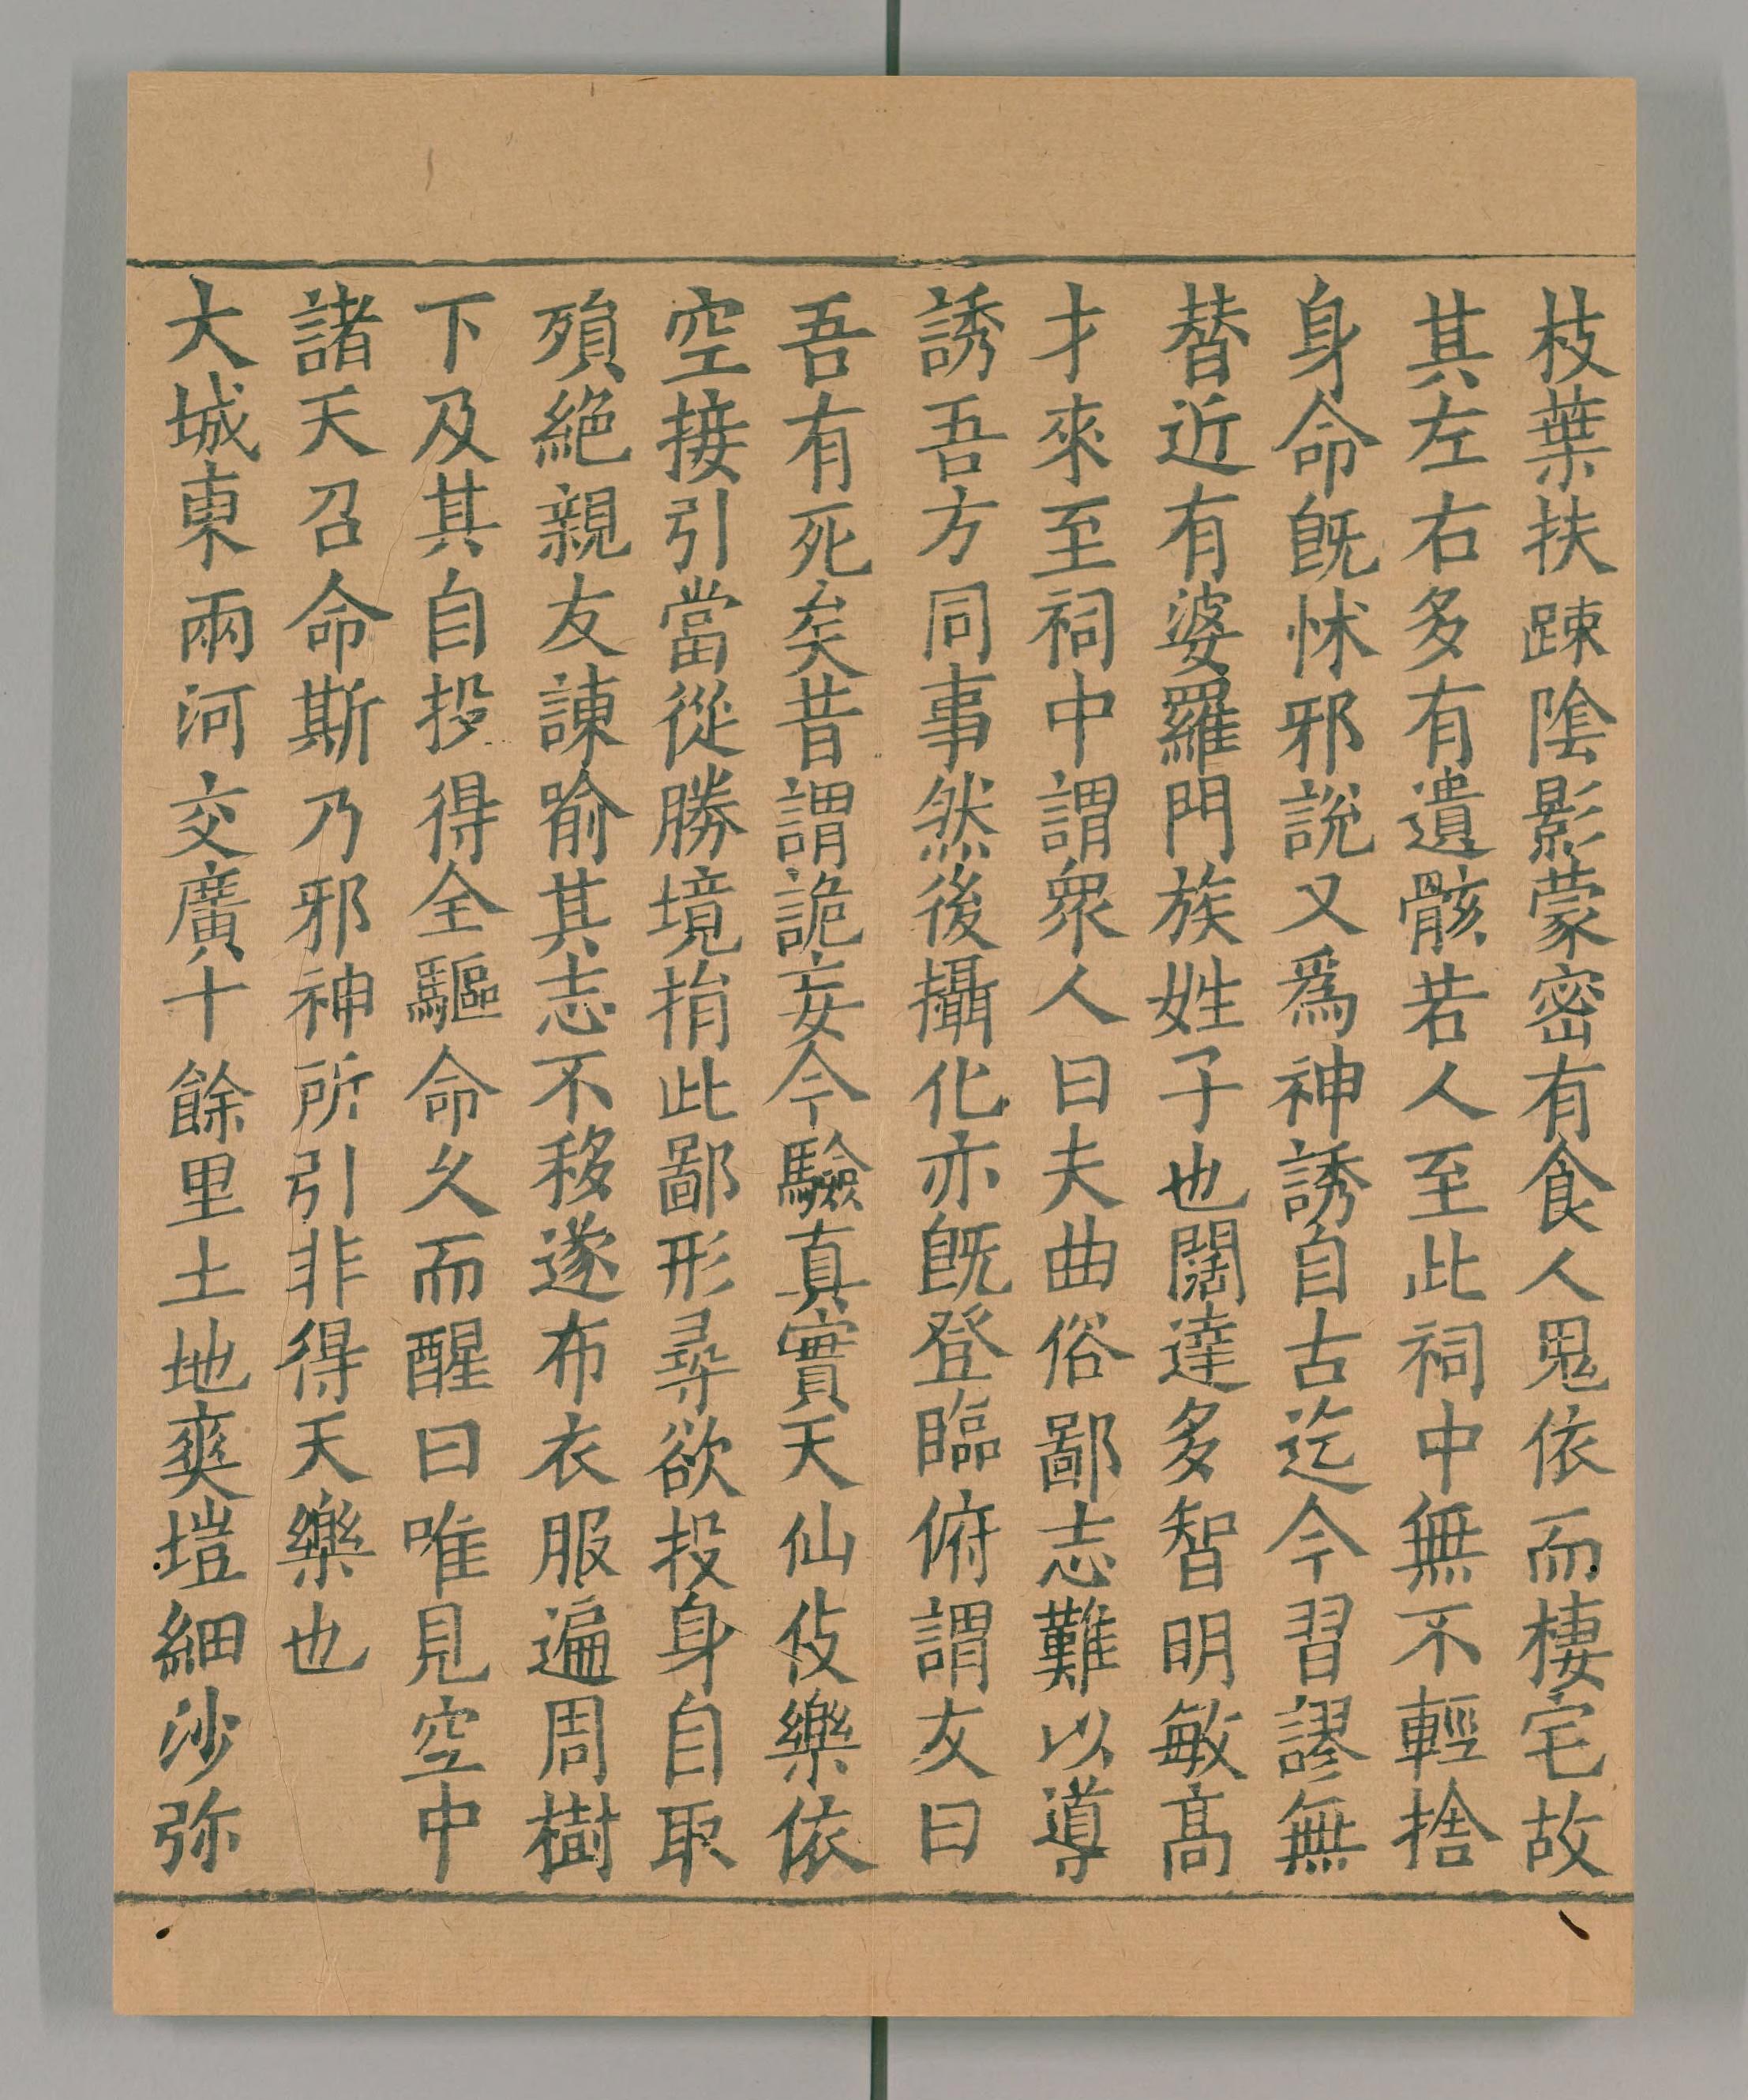 枝葉扶踈陰影蒙密有食人鬼依而棲宅故
其左右多有遺骸若人至此祠中無不輕捨
身命既怵邪說又爲神誘自古迄今習謬無
替近有婆羅門族姓子也闊達多智明敏高
才來至祠中謂衆人曰夫曲俗鄙志難以導
誘吾方同事然後攝化亦既登臨俯謂友曰
吾有死矣昔謂詭妄今驗真實天仙伎樂依
空接引當從勝境捐此鄙形尋欲投身自取
殞絕親友諫喻其志不移遂布衣服遍周樹
下及其自投得全驅命久而醒曰唯見空中
諸天召命斯乃邪神所引非得天樂也
大城東兩河交廣十餘里土地爽塏細沙弥